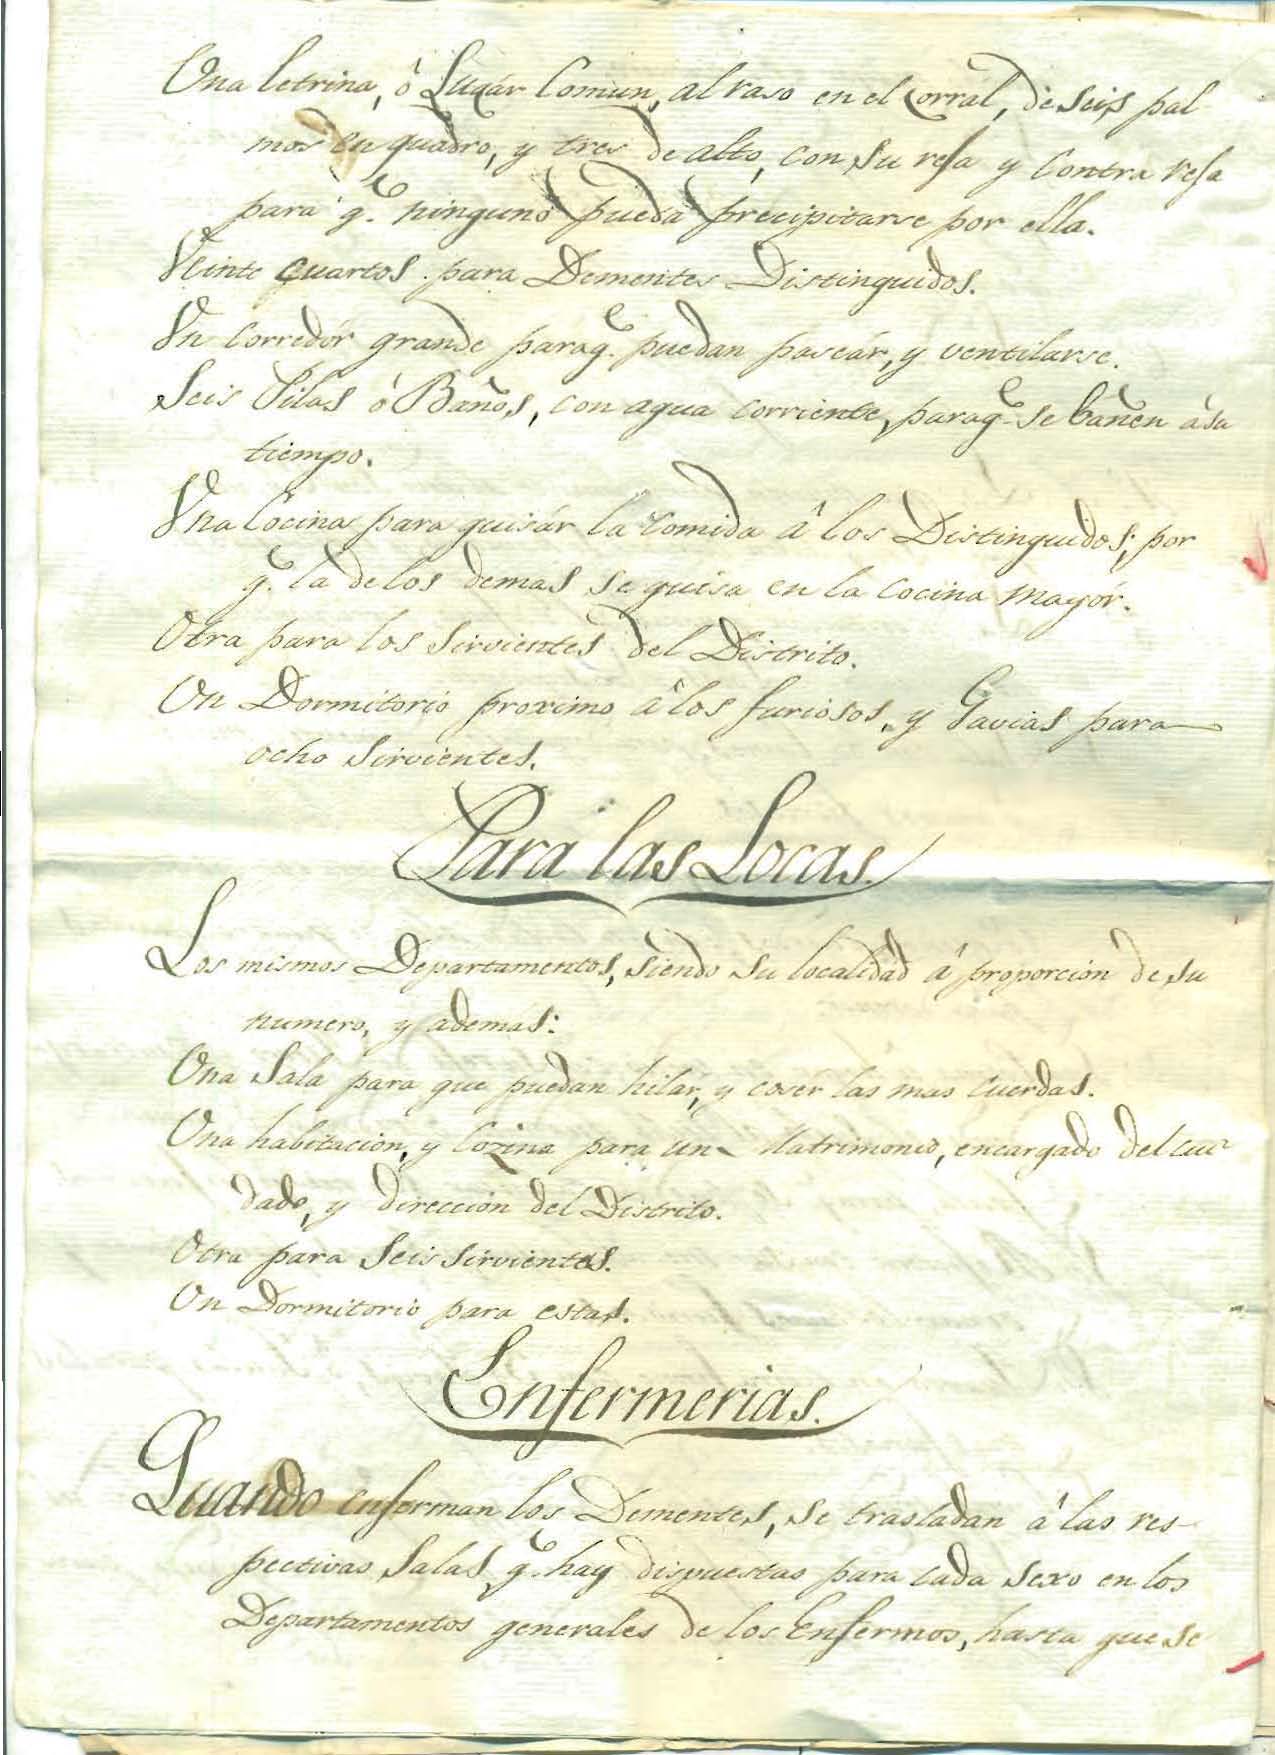 Una letrina, ó Lugár Comun, al raso en el Corral, de seis pal
mos en quadro, y tres de alto, con su reja y Contra reja
para q.e ninguno pueda precipitarse por ella.
Veinte quartos para Dementes Distinguidos.
Un Corredór grande paraq.e puedan paseár, y ventilarse.
Seis Pilas ó Baños, con agua corriente, paraq.e se bañen á su
tiempo.
Una Cocina para guisár la Comida â los Distinguidos; por
q.e la de los demas se guisa en la Cocina mayór.
Otra para los Sirvientes del Distrito.
Un Dormitorio proximo â los furiosos, y Gavias para
ocho Sirvientes.
Para las Locas.
Los mismos Departamentos, siendo su localidad á proporcion de su
numero, y ademas:
Una Sala para que puedan hilár, y coser las mas Cuerdas.
Una habitacion, y Cozina para un Matrimonio, encargado del cui
dado, y dirección del Distrito.
Otra para Seis Sirvientas.
Un Dormitorio para estas.
Enfermerias.
Quando enferman los Dementes, se trasladan â las res-
pectivas Salas q.e hay dispuestas para cada sexo en los
Departamentos generales de los Enfermos, hasta que se